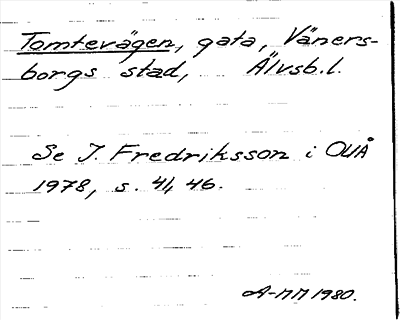 Tomtevägen, gata, Väners-
borgs stad, Älvsb.l.
Se J. Fredriksson i OUÅ
1978, s. 41, 46.
A-MM 1980.